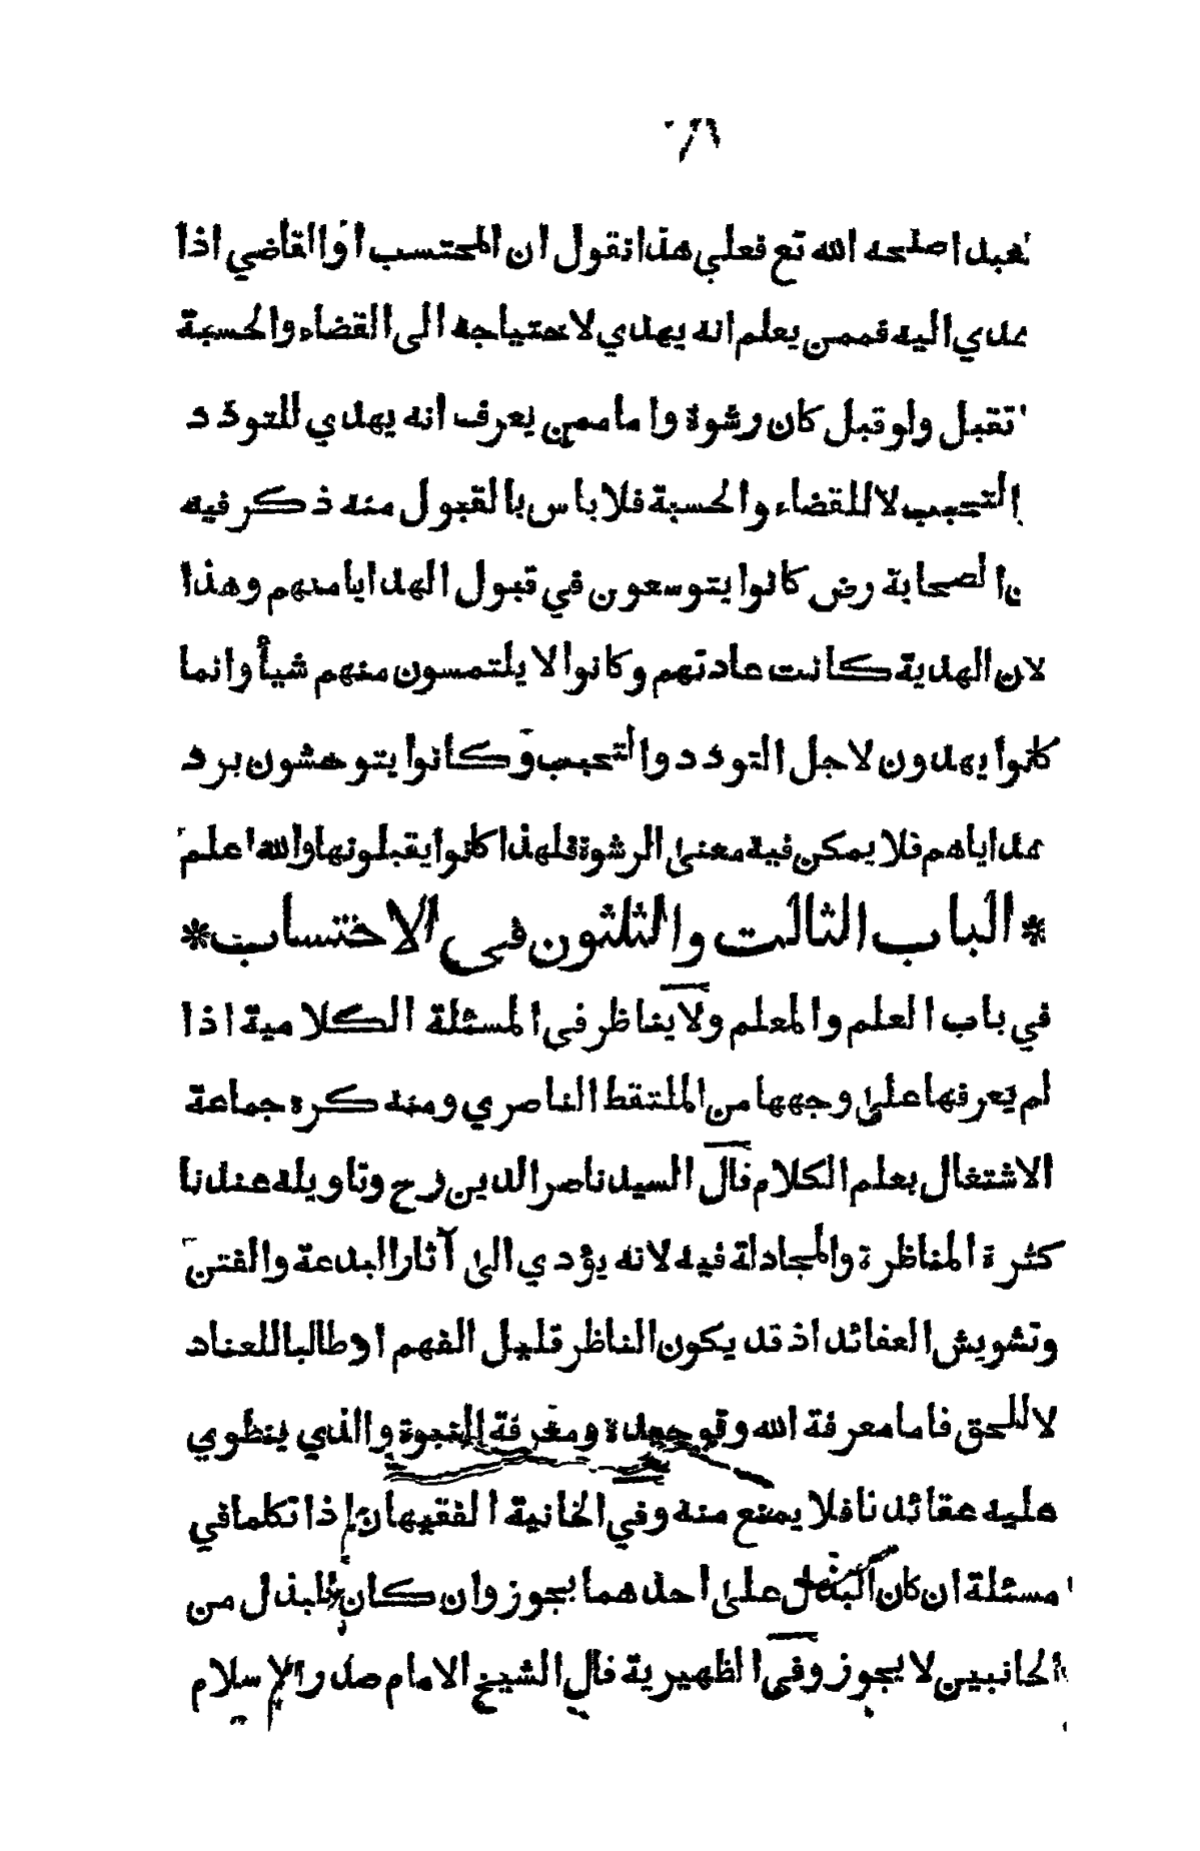 لعبد اصلحه الله تع فعلي هذا نقول ان المحتسب او القاضي اذا
هدي اليه فممن يعلم انه يهدي لاحتياجه الى القضاء والحسبة
لا تقبل ولو قبل كان رشوة واما ممن يعرف انه يهدي للتودد
والتحبب لا للقضاء والحسبة فلا باس با القبول منه ذكر فيه
ان الصحابة رض كانوا يتوسعون في قبول الهدايا منهم وهذا
لان الهدية كانت عادتهم وكانوا لا يلتمسون منهم شيأ وانما
كانوا يهدون لاجل التودد والتحبب وكانوا يتوحشون برد
هداياهم فلا يمكن فيه معنى الرشوة فلهذا كانوا يقبلونها والله اعلم
* الباب الثالث والثلثون فى الاحتساب *
في باب العلم والمعلم ولا يناظر فى المسئلة الكلامية اذا
لم يعرفها على وجهها من الملتقط الناصري ومنه كره جماعة
الاشتغال بعلم الكلام قال السيد ناصر الدين رح وتاويله عندنا
كثرة المناظرة والمجادلة فيه لانه يؤدي الى آثار البدعة والفتن
وتشويش العقائد اذ قد يكون الناظر قليل الفهم او طالبا للعناد
لا للحق فاما معرفة الله وتوحيده ومعرفة النبوة والذي ينطوي
عليه عقائدنا فلا يمنع منه وفي الخانية الفقيهان إذا تكلما في
مسئلة ان كان البذل على احدهما يجوز وان كان البذل من
الجانبين لا يجوز وفى الظهيرية قال الشيخ الامام صدر الاسلام